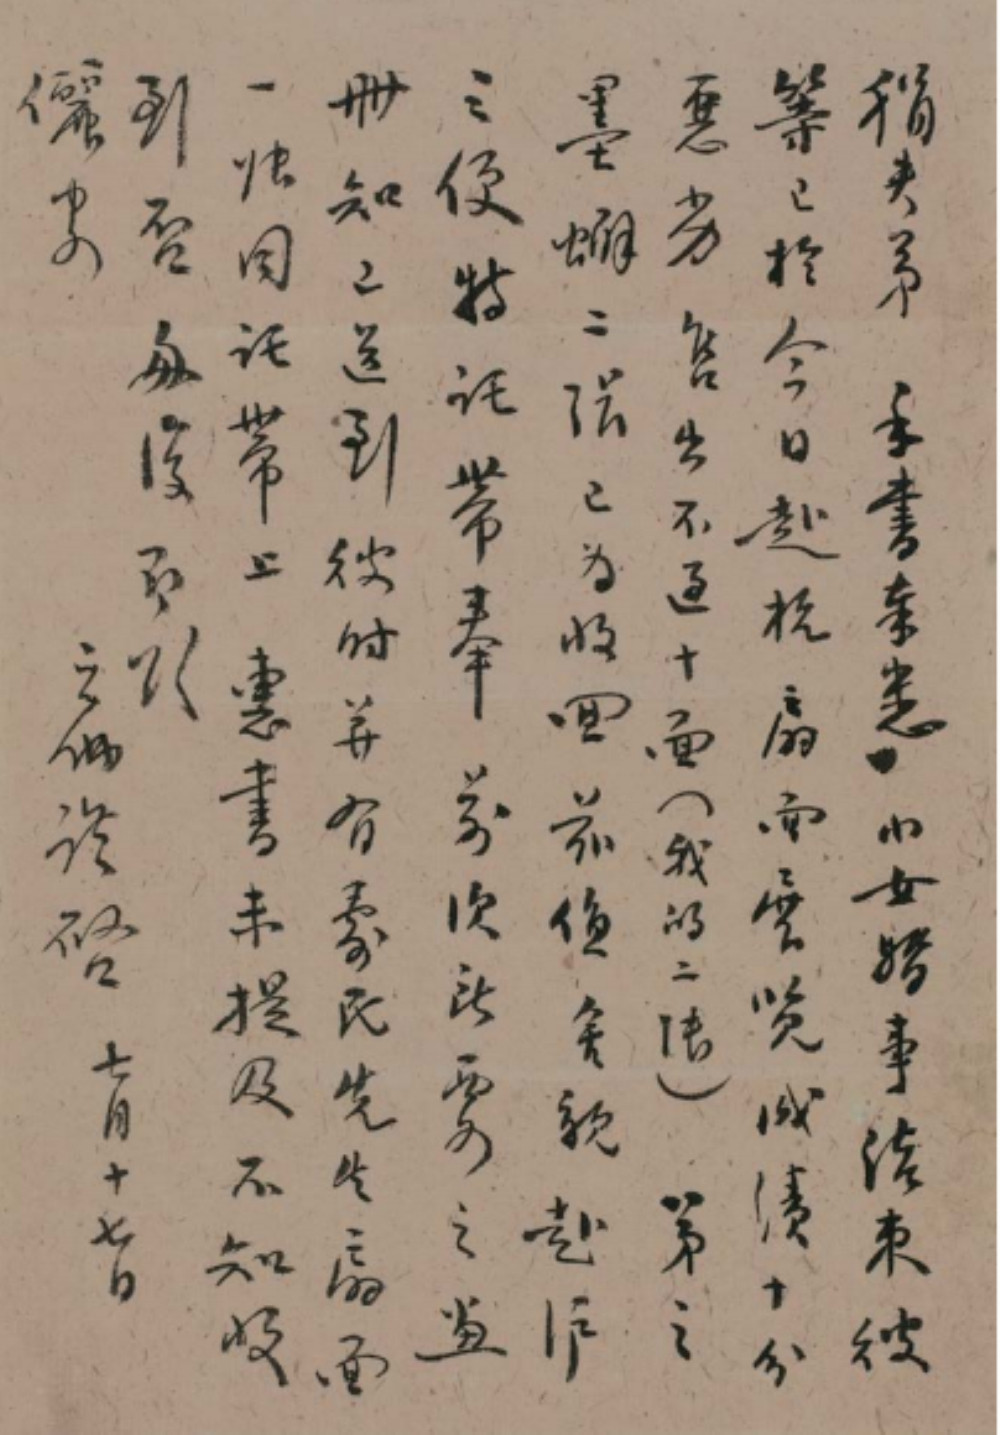 稍夫弟 手書奉悉 小女婚事結束彼
等已於今日赴杭 扇面展覽成績十分
惡劣 售出不過十面（我的二張） 弟之
墨蟹二張已為收回 茲值舍親赴滬
之便特託帶奉 前次所要之畫
冊知已送到 彼時並有 民先生扇面
一張同託帶上 惠書未提及不知收
到否 匆復即頌
儷安
啓 七月十七日